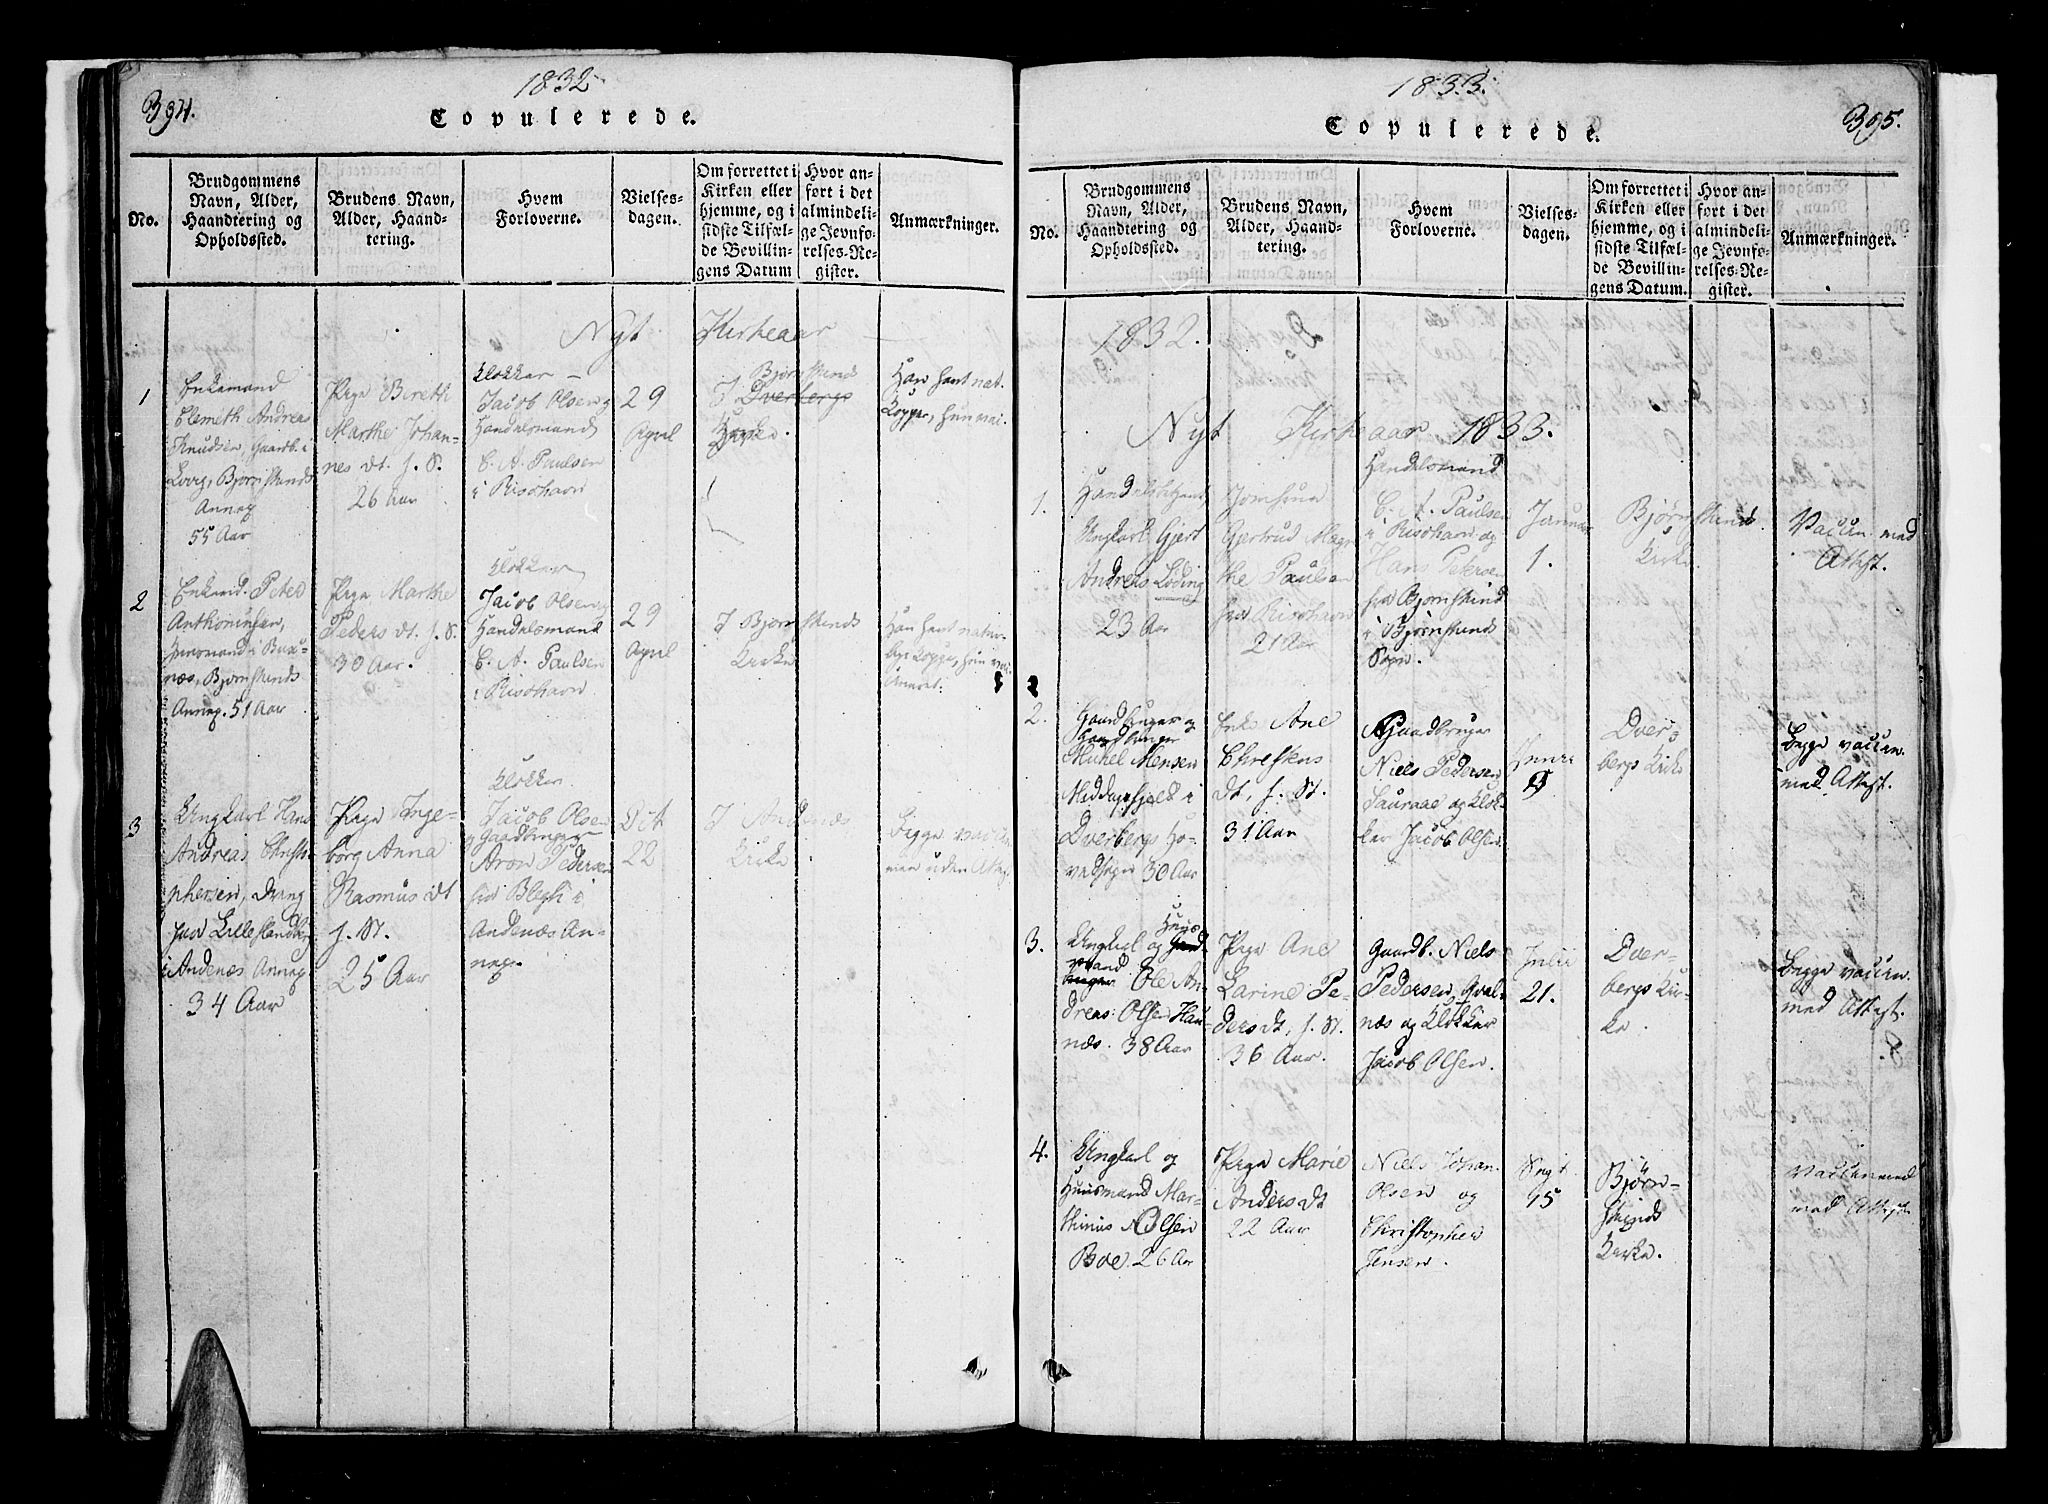 394.
1832
Copulerede.
No.
Brudgommens
Navn, Alder,
Haandtering og
Opholdssted.
Brudens Navn,
Alder, Haand-
tering.
Hvem
Forloverne.
Vielses-
dagen.
Om forrettet i
Kirken eller
hjemme, og i
sidste Tilfæl-
de Bevillin-
gens Datum
Hvor an-
ført i det
almindeli-
ge Jevnfø-
relses-Re-
gister.
Anmærkninger.
Nyt Kirkeaar
1
Enkemand
Elemeth Andreas
Knudsen, Gaardb. i
Bjørnskinds
Annex
55 Aar
Pige Bereth
Marthe Johan-
nes dt. f. S.
26 Aar
Klokker
Jacob Olsen og
Handelsmand
C. A. Paulsen
i Risøhavn
29
April
I Bjørnskinds
Dverbergs
Kirke.
Han havt nat.
Kopper, hun vac.
2
Enkemd. Peter
Anthonissen,
Huusmand i Bux-
næs, Bjørnskinds
Annex. 51 Aar
Pige Marthe
Peders dt. f. S.
30 Aar.
Klokker
Jacob Olsen og
Handelsmand
C. A. Paulsen
i Risøhavn
29
April
I Bjørnskinds
Kirke
Han havt natur-
lige Kopper, hun vac-
cineret.
3
Ungkarl Hans
Andreas Christo-
phersen, Dreng
fra Lille
i Andenæs Annex
34 Aar
Pige Inge-
borg Anna
Rasmus dt
f. St.
25 Aar
Klokker
Jacob Olsen
og Gaardbruger
Aron Pedersen
fra Bleg i
Andenæs An-
nex.
Oct
22
I Andenæs
Kirke
Begge vacci-
uden Attest
1833.
395.
Copulerede.
No.
Brudgommens
Navn, Alder,
Haandtering og
Opholdssted.
Brudens Navn,
Alder, Haand-
tering.
Hvem
Forloverne.
Vielses-
dagen.
Om forrettet i
Kirken eller
hjemme, og i
sidste Tilfæl-
de Bevillin-
gens Datum.
Hvor an-
ført i det
almindeli-
ge Jevnfø-
relses-Re-
gister.
Anmærkninger.
1832.
Nyt Kirkeaar 1833.
1.
Ungkarl Gjert
Andreas Løding
23 Aar
Jomfrue
Gjertrud Magre-
the Paulsen
fra Risøhavn
21 Aar
Handelsmand
C. A. Paulsen
i Risøhavn og
Hans Petersen
fra Bjørnskind
i Bjørnskinds
Sogn.
Januar
1.
Bjørnskinds
Kirke
Vaccin. med
Attest.
2.
Gaardbruger og
Mikel Mensen
Middagsfjeld i
Dverbergs Ho-
vedsogn 30 Aar
Enke Ane
Christens
dt, f. St.
31 Aar
Gaardbruger
Niels Pedersen
Sauraae og Klok-
ker Jacob Olsen
Dver-
bergs Kirke
Begge vaccin.
med Attest.
3.
Ungkarl og Huus-
mand Ole An-
dreas Olsen Hau-
næs. 38 Aar
Pige Ane
Carine Pe-
dersdt, f. St.
36 Aar.
Gaardb. Niels
Pedersen, Qval-
næs og Klokker
Jacob Olsen.
Julii
21.
Dver-
bergs Kir-
ke
Begge vaccin.
med Attest.
4.
Ungkarl og
Huusmand Mar-
thinus Olsen
Boe. 26 Aar
Pige Marie
Andersdt
22 Aar
Niels Johan
Olsen og
Christopher
Jensen.
Sept
15
Bjørn-
skinds
Kirke.
Vaccineered
med Attest